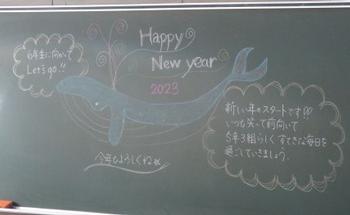 6年生に向けて
Let's go!!
Happy
New year
2023
新しい年のスタートです!!
いつも笑って前向いて
5年3組らしく すてきな毎日を
過ごしていきましょう。
今年もよろしくね